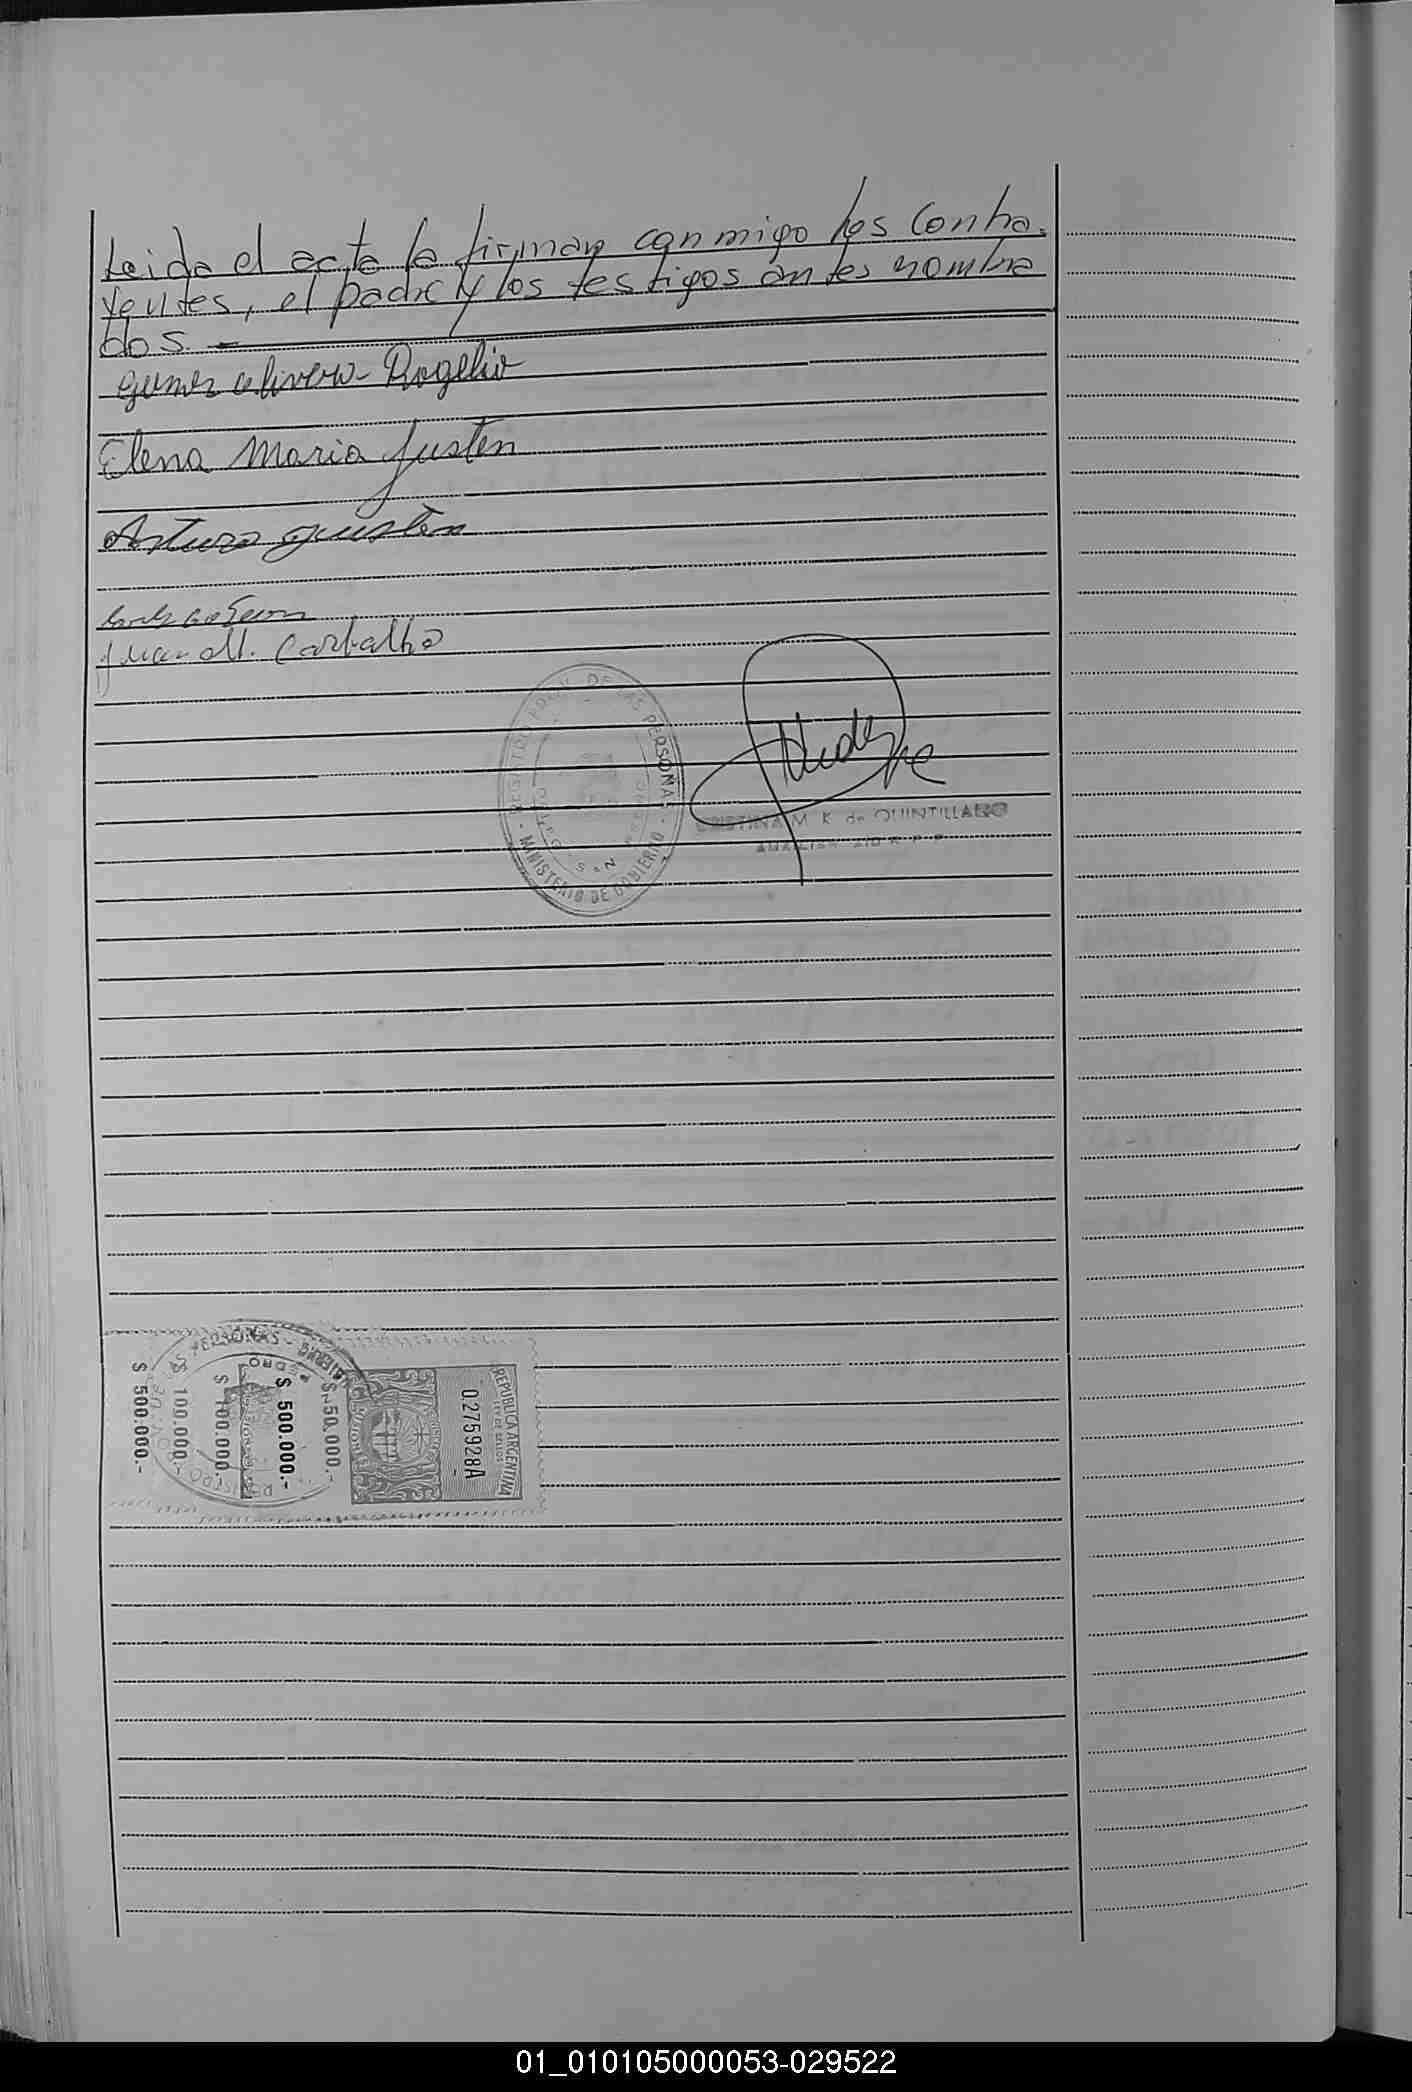 Leida el acta la firman conmigo los contra-
yentes, el padre y los testigos antes nombra
dos. -
Rogelio
Elena Maria Justen
Arturo Justen
Juan M. Carballo
REGISTRO DE LAS PERSONAS
MINISTERIO DE GOBIERNO
CRISTINA M. K. de QUINTILLANO
REPUBLICA ARGENTINA
LEY DE SELLOS
0.275928A
$ 50.000.-
$ 500.000.-
$ 100.000.-
$ 100.000.-
$ 500.000.-
01_010105000053-029522